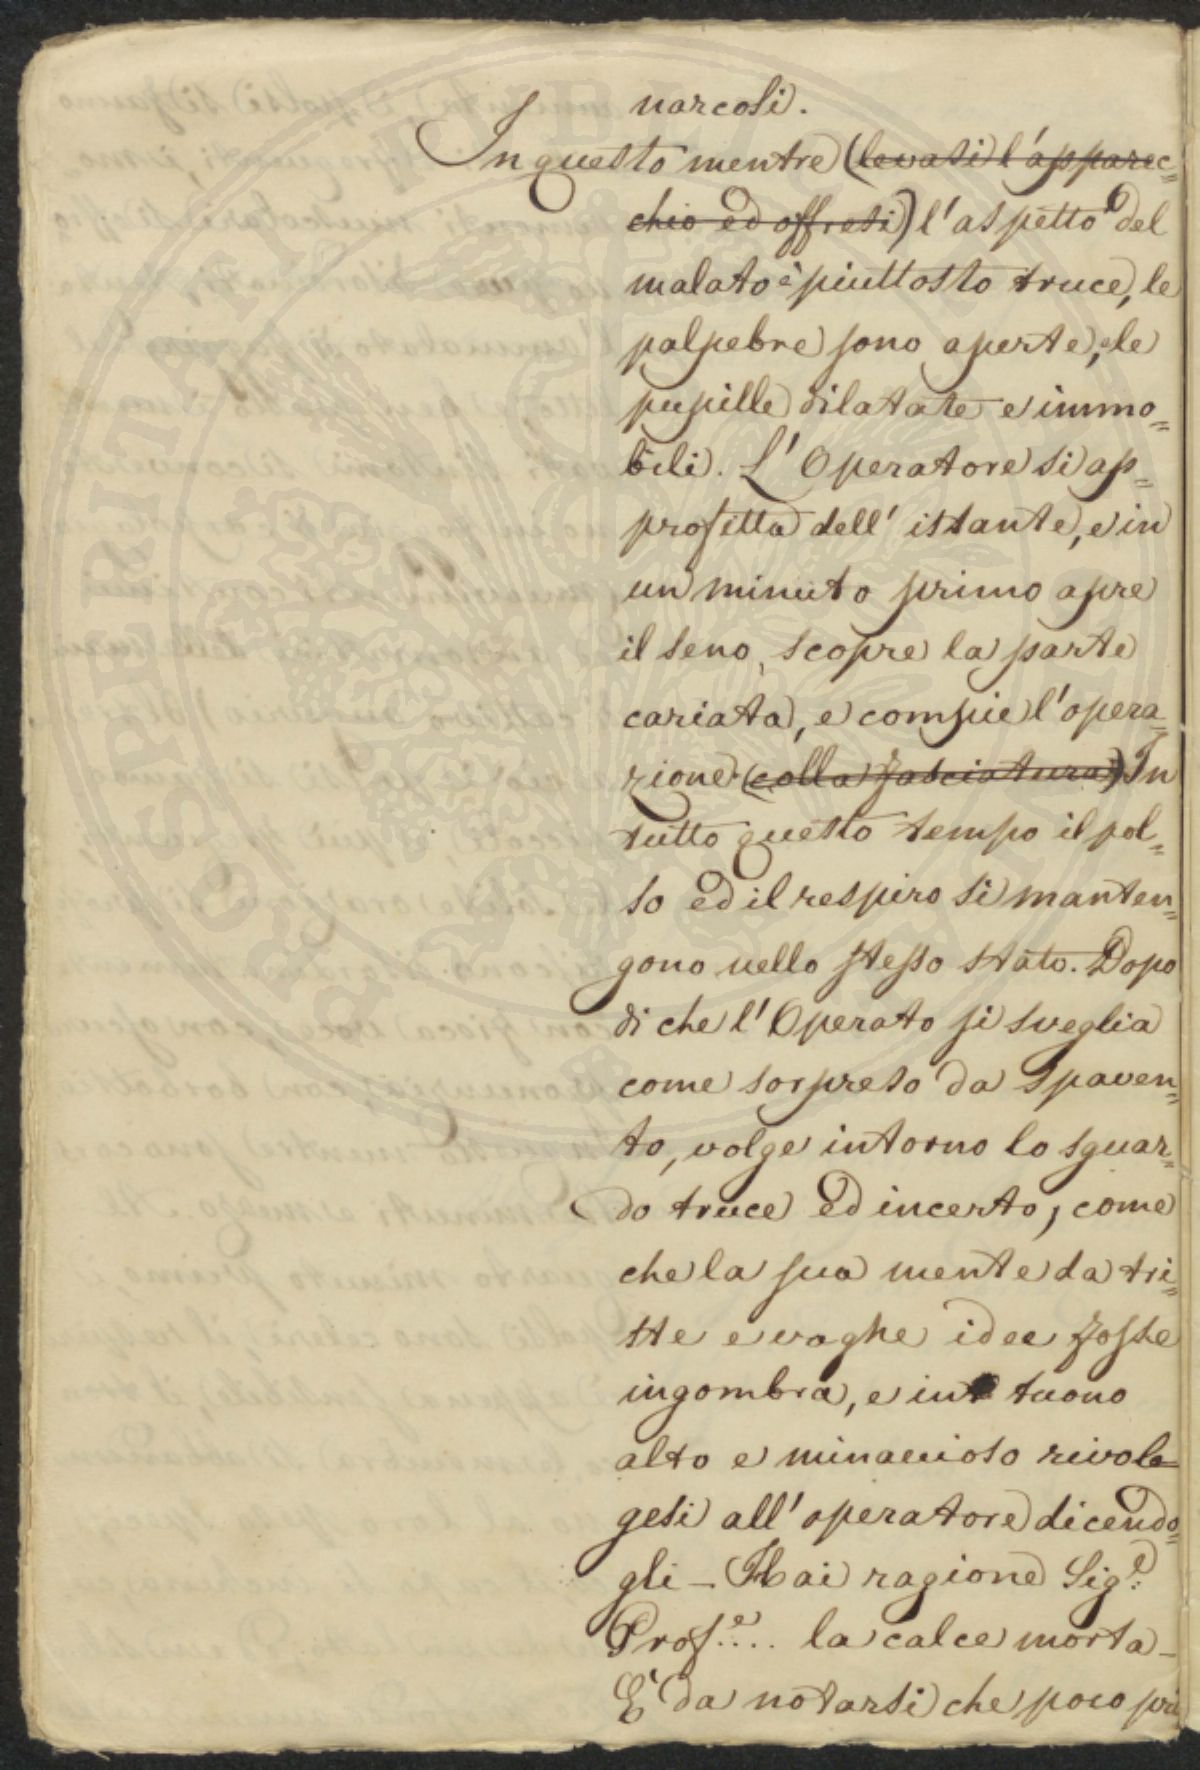 narcosi.
In questo mentre (levasi l'apparec=
chio ed offresi) l'aspetto del
malato è piuttosto truce, le
palpebre sono aperte, le
pupille dilatate e immo=
bili. L'Operatore si ap=
profitta dell'istante, e in
un minuto primo apre
il seno, scopre la parte
cariata, e compie l'opera=
zione (colla fasciatura) In
tutto questo tempo il pol=
so ed il respiro si manten=
gono nello stesso stato. Dopo
di che l'Operato si sveglia
come sorpreso da spaven=
to, volge intorno lo sguar=
do truce ed incerto, come
che la sua mente da tri=
ste e vaghe idee fosse
ingombra, e in tuono
alto e minaccioso rivol=
gesi all'operatore dicendo=
gli – Hai ragione Sig.e
Prof.e... la calce morta –
E' da notarsi che poco pri
PROSPERITATI PUBLICAE